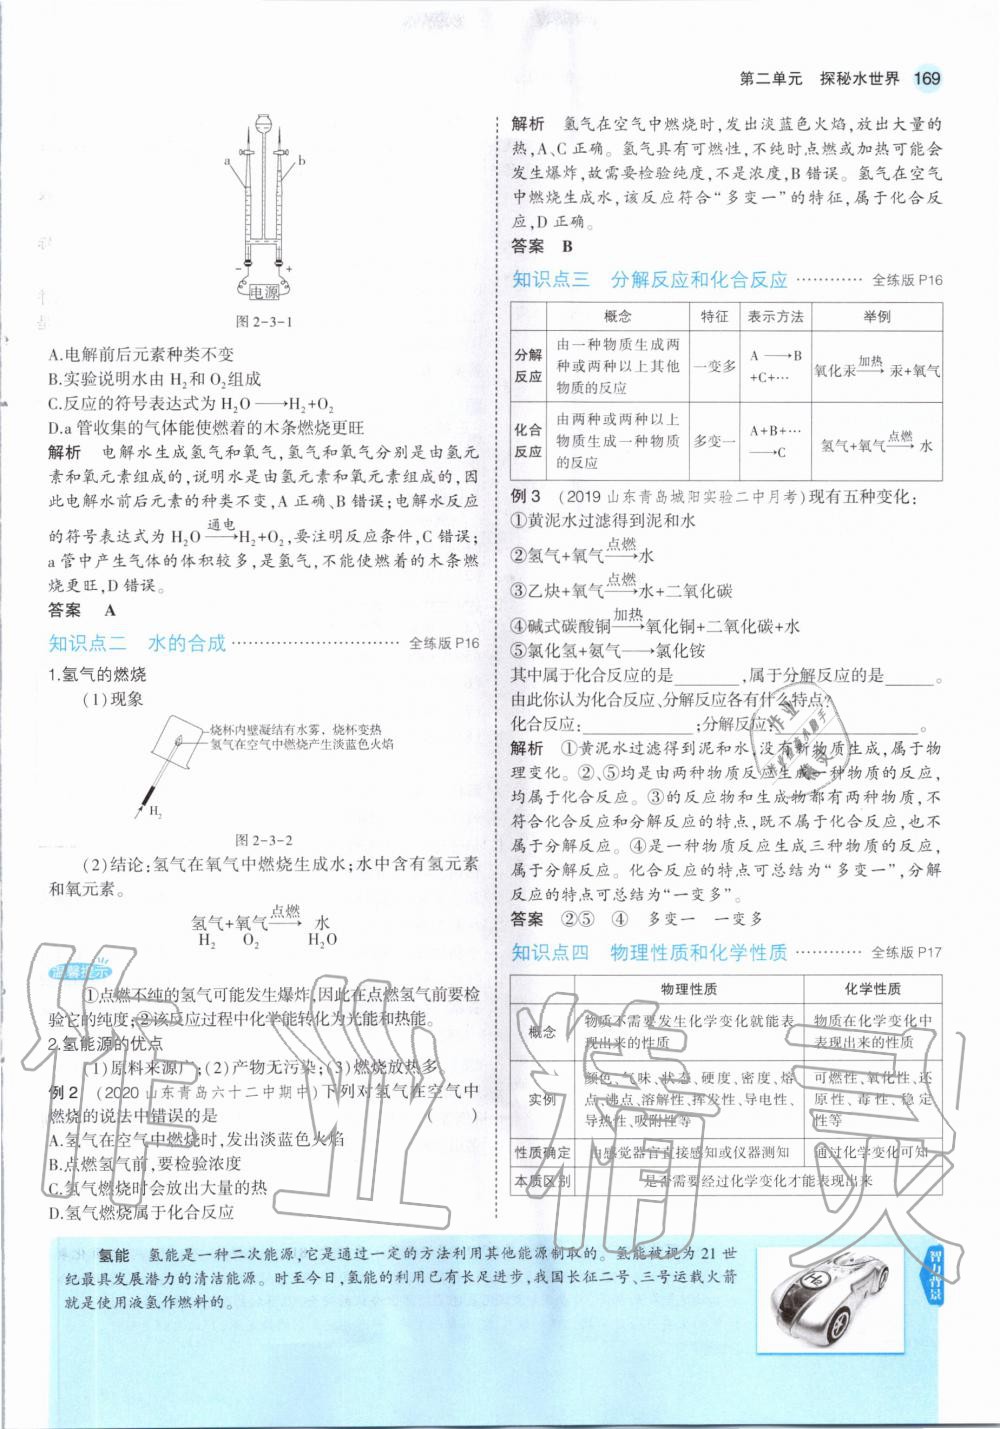 第二单元 探秘水世界 169
a b
- +
电源
图 2-3-1
A.电解前后元素种类不变
B.实验说明水由 H₂和 O₂组成
C.反应的符号表达式为 H₂O ⟶H₂+O₂
D.a 管收集的气体能使燃着的木条燃烧更旺
解析 电解水生成氢气和氧气,氢气和氧气分别是由氢元
素和氧元素组成的,说明水是由氢元素和氧元素组成的,因
此电解水前后元素的种类不变,A 正确、B 错误;电解水反应
的符号表达式为 H₂O —通电→H₂+O₂,要注明反应条件,C 错误;
a 管中产生气体的体积较多,是氢气,不能使燃着的木条燃
烧更旺,D 错误。
答案 A
知识点二 水的合成 ………………………… 全练版 P16
1.氢气的燃烧
(1)现象
烧杯内壁凝结有水雾、烧杯变热
氢气在空气中燃烧产生淡蓝色火焰
H₂
图 2-3-2
(2)结论:氢气在氧气中燃烧生成水;水中含有氢元素
和氧元素。
氢气+氧气—点燃→ 水
H₂ O₂ H₂O
温馨提示
①点燃不纯的氢气可能发生爆炸,因此在点燃氢气前要检
验它的纯度;②该反应过程中化学能转化为光能和热能。
2.氢能源的优点
(1)原料来源广;(2)产物无污染;(3)燃烧放热多。
例 2 (2020 山东青岛六十二中期中)下列对氢气在空气中
燃烧的说法中错误的是 ( )
A.氢气在空气中燃烧时,发出淡蓝色火焰
B.点燃氢气前,要检验浓度
C.氢气燃烧时会放出大量的热
D.氢气燃烧属于化合反应
解析 氢气在空气中燃烧时,发出淡蓝色火焰,放出大量的
热,A、C 正确。氢气具有可燃性,不纯时点燃或加热可能会
发生爆炸,故需要检验纯度,不是浓度,B 错误。氢气在空气
中燃烧生成水,该反应符合“多变一”的特征,属于化合反
应,D 正确。
答案 B
知识点三 分解反应和化合反应 ………… 全练版 P16
概念 特征 表示方法 举例
分解反应 由一种物质生成两种或两种以上其他物质的反应 一变多 A ⟶B+C+… 氧化汞—加热→ 汞+氧气
化合反应 由两种或两种以上物质生成一种物质的反应 多变一 A+B+…⟶C 氢气+氧气—点燃→ 水
例 3 (2019 山东青岛城阳实验二中月考)现有五种变化:
①黄泥水过滤得到泥和水
②氢气+氧气—点燃→水
③乙炔+氧气—点燃→水+二氧化碳
④碱式碳酸铜—加热→氧化铜+二氧化碳+水
⑤氯化氢+氨气⟶氯化铵
其中属于化合反应的是______,属于分解反应的是______。
由此你认为化合反应、分解反应各有什么特点?
化合反应:____________;分解反应:____________。
解析 ①黄泥水过滤得到泥和水,没有新物质生成,属于物
理变化。②、⑤均是由两种物质反应生成一种物质的反应,
均属于化合反应。③的反应物和生成物都有两种物质,不
符合化合反应和分解反应的特点,既不属于化合反应,也不
属于分解反应。④是一种物质反应生成三种物质的反应,
属于分解反应。化合反应的特点可总结为“多变一”,分解
反应的特点可总结为“一变多”。
答案 ②⑤ ④ 多变一 一变多
知识点四 物理性质和化学性质 ………… 全练版 P17
物理性质 化学性质
概念 物质不需要发生化学变化就能表现出来的性质 物质在化学变化中表现出来的性质
实例 颜色、气味、状态、硬度、密度、熔点、沸点、溶解性、挥发性、导电性、导热性、吸附性等 可燃性、氧化性、还原性、毒性、稳定性等
性质确定 由感觉器官直接感知或仪器测知 通过化学变化可知
本质区别 是否需要经过化学变化才能表现出来
氢能 氢能是一种二次能源,它是通过一定的方法利用其他能源制取的。氢能被视为 21 世
纪最具发展潜力的清洁能源。时至今日,氢能的利用已有长足进步,我国长征二号、三号运载火箭
就是使用液氢作燃料的。
智力背景
作业精灵